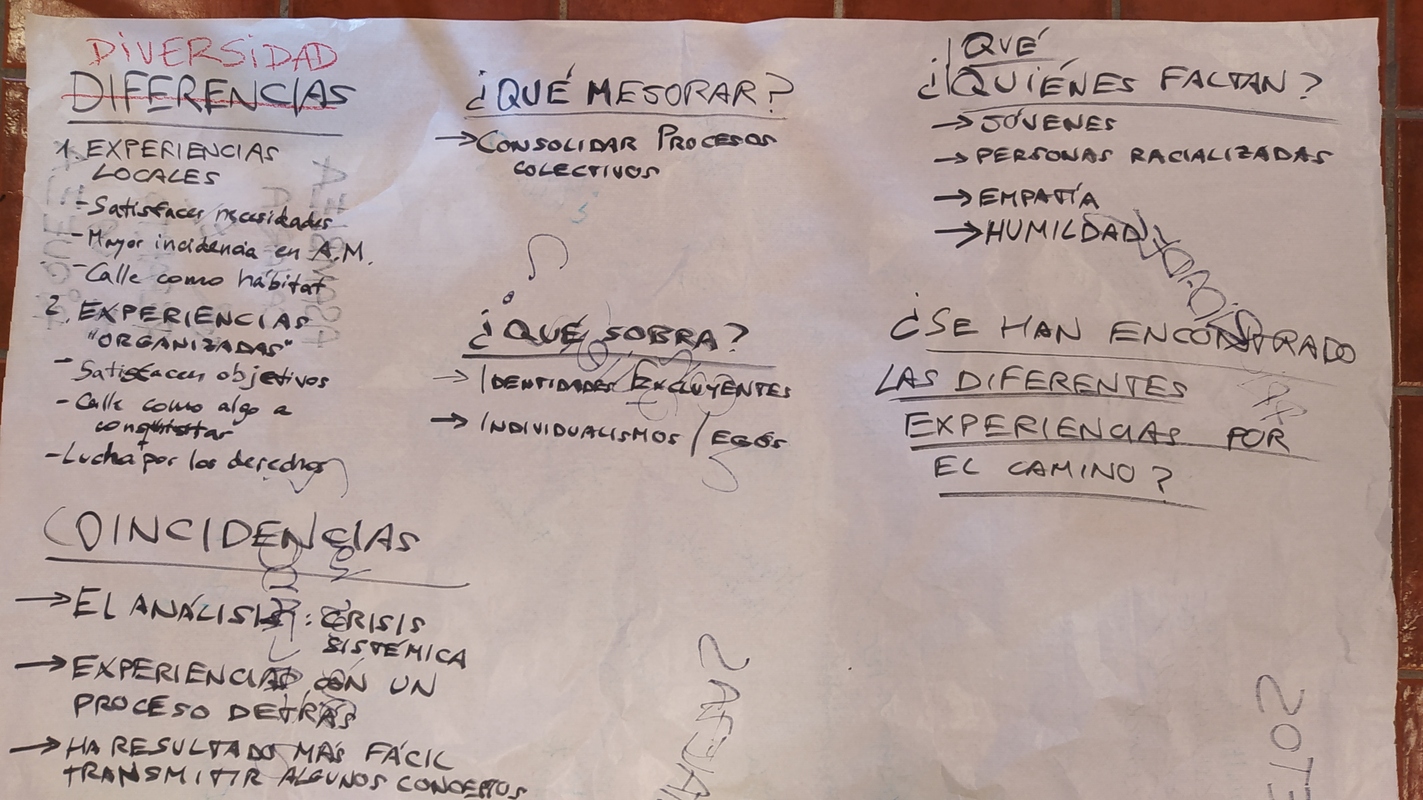 DIVERSIDAD
DIFERENCIAS
1. EXPERIENCIAS
LOCALES
- Satisfacer necesidades
- Mayor incidencia en A.M.
- Calle como hábitat
2. EXPERIENCIAS
"ORGANIZADAS"
- Satisfacen objetivos
- Calle como algo a
conquistar
- Lucha por los derechos
COINCIDENCIAS
→ EL ANÁLISIS: CRISIS
SISTÉMICA
→ EXPERIENCIAS CON UN
PROCESO DETRÁS
→ HA RESULTADO MÁS FÁCIL
TRANSMITIR ALGUNOS CONCEPTOS
¿QUÉ MEJORAR?
→ CONSOLIDAR PROCESOS
COLECTIVOS
¿QUÉ SOBRA?
→ IDENTIDADES EXCLUYENTES
→ INDIVIDUALISMOS / EGOS
QUÉ
¿QUIÉNES FALTAN?
→ JÓVENES
→ PERSONAS RACIALIZADAS
→ EMPATÍA
→ HUMILDAD
¿SE HAN ENCONTRADO
LAS DIFERENTES
EXPERIENCIAS POR
EL CAMINO?